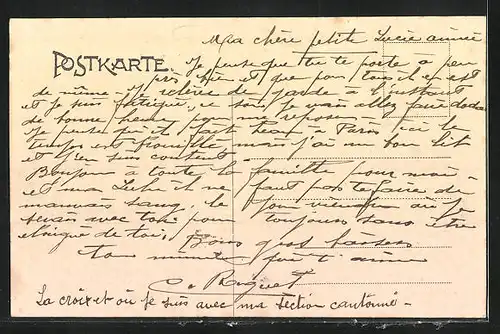 Ma chère petite Lucie aimée
POSTKARTE.
Je pense que tu te porte à peu
près bien et que pour tous il en est
de même. Je relève de garde à l'instant
et je suis fatigué, ce soir je vais aller faire dodo
de bonne heure pour me reposer.
Je pense qu'il fait beau à Paris ici le
temps est brouillé mais j'ai un bon lit
et j'en suis content.
Bonjour à toute la famille pour moi
et ma il ne faut pas te faire de
mauvais sang, le jour viendra où je
serais avec toi pour toujours sans être
éloigné de toi. Bons gros baisers
ton qui t'aime
La croix et où je suis avec ma section cantonné